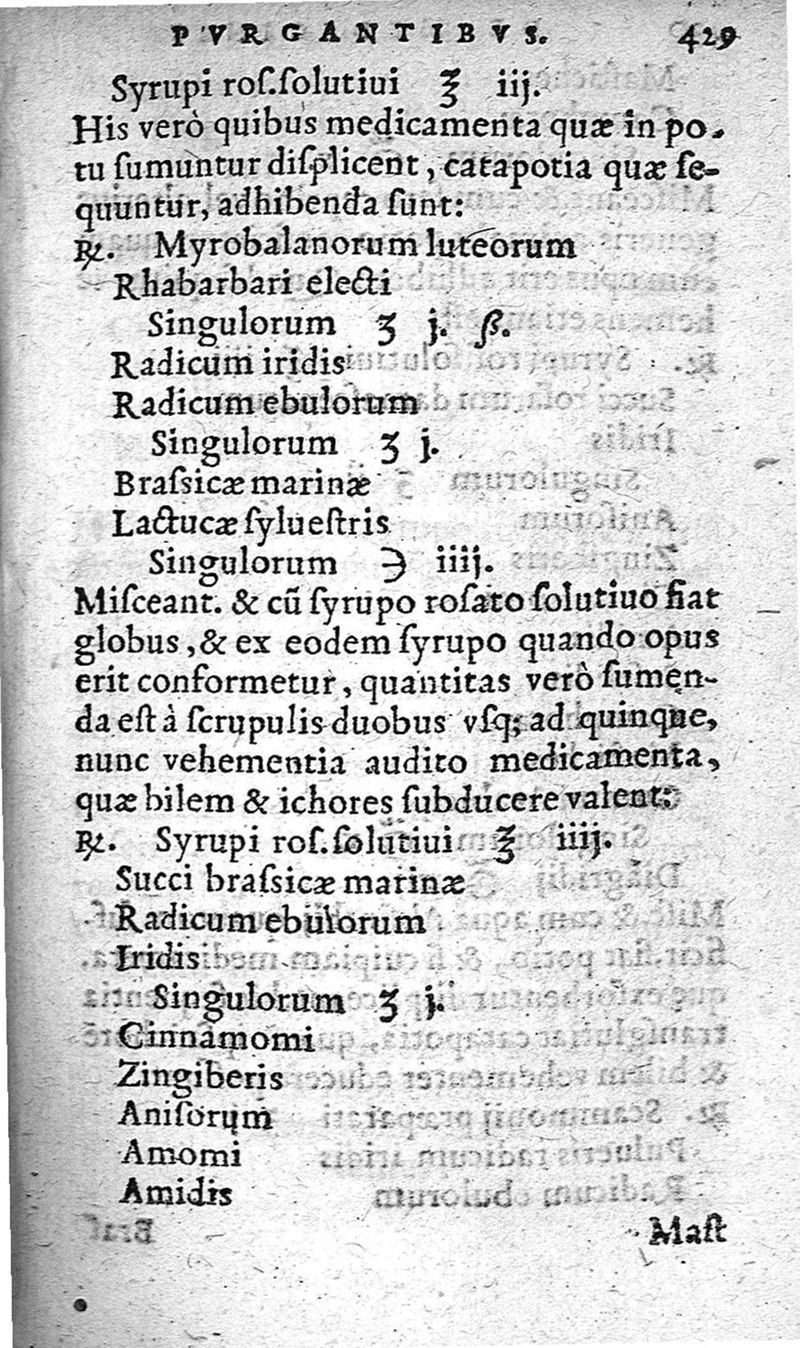 PVRGANTIBVS. 429
Syrupi roſ.ſolutiui ℥ iij.
His verò quibus medicamenta quæ in po-
tu ſumuntur diſplicent, catapotia quæ ſe-
quuntur, adhibenda ſunt:
℞. Myrobalanorum luteorum
Rhabarbari electi
Singulorum ʒ j. ß.
Radicum iridis
Radicum ebulorum
Singulorum ʒ j.
Braſsicæ marinæ
Lactucæ ſylueſtris
Singulorum ℈ iiij.
Miſceant. & cũ ſyrupo roſato ſolutiuo fiat
globus, & ex eodem ſyrupo quando opus
erit conformetur, quantitas verò ſumen-
da eſt à ſcrupulis duobus vſq; ad quinque,
nunc vehementia audito medicamenta,
quæ bilem & ichores ſubducere valent:
℞. Syrupi roſ.ſolutiui ℥ iiij.
Succi braſsicæ marinæ
Radicum ebulorum
Iridis
Singulorum ʒ j.
Cinnamomi
Zingiberis
Aniſorum
Amomi
Amidis
Maſt